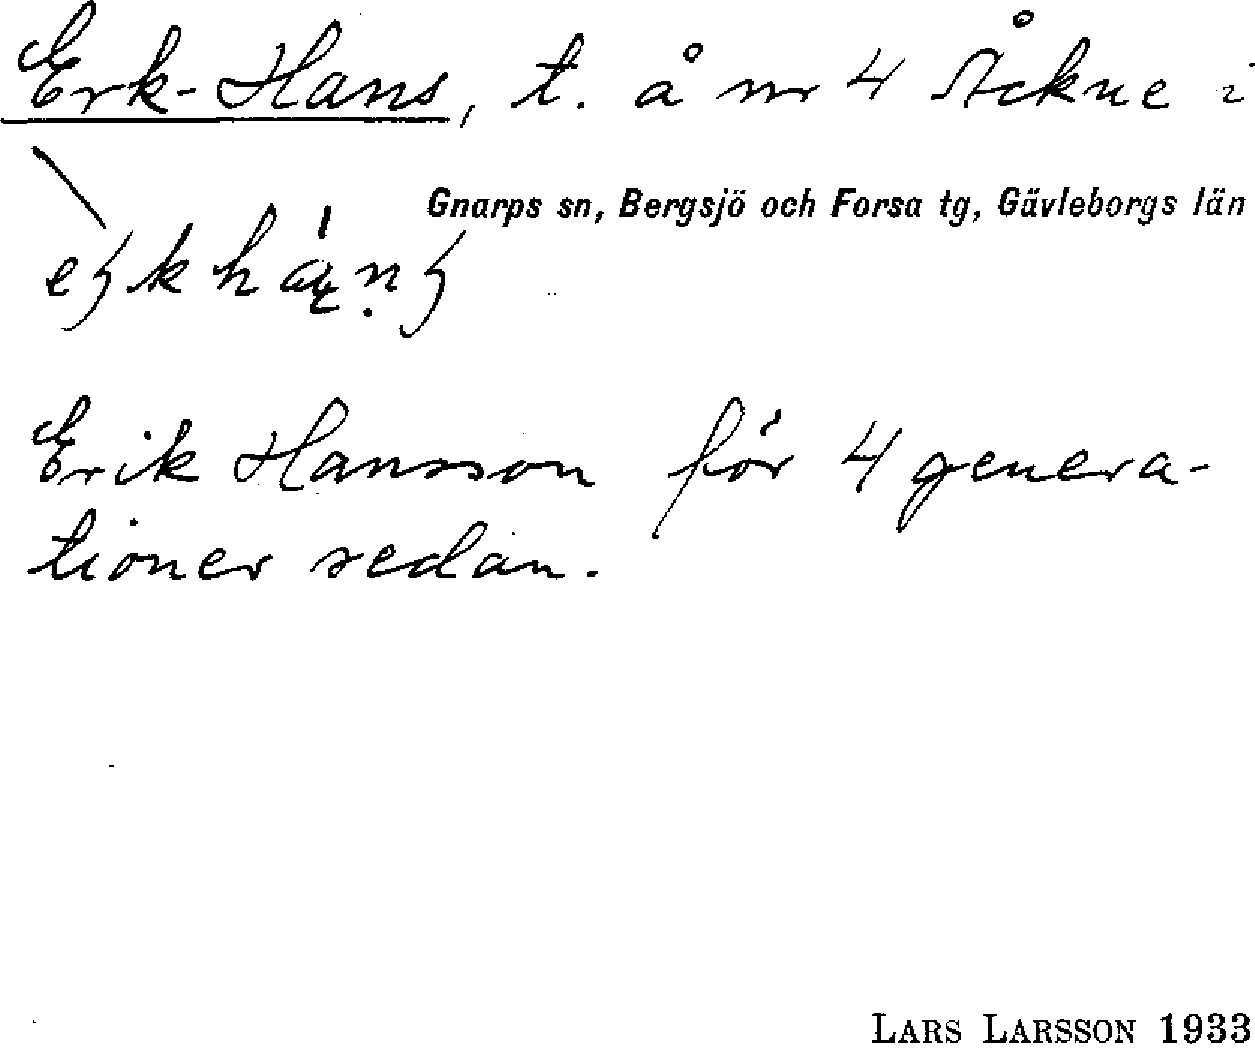 Erk-Hans, t. å nr 4 Åckne i
Gnarps sn, Bergsjö och Forsa tg, Gävleborgs län
Erik Hansson för 4 genera-
tioner sedan.
LARS LARSSON 1933